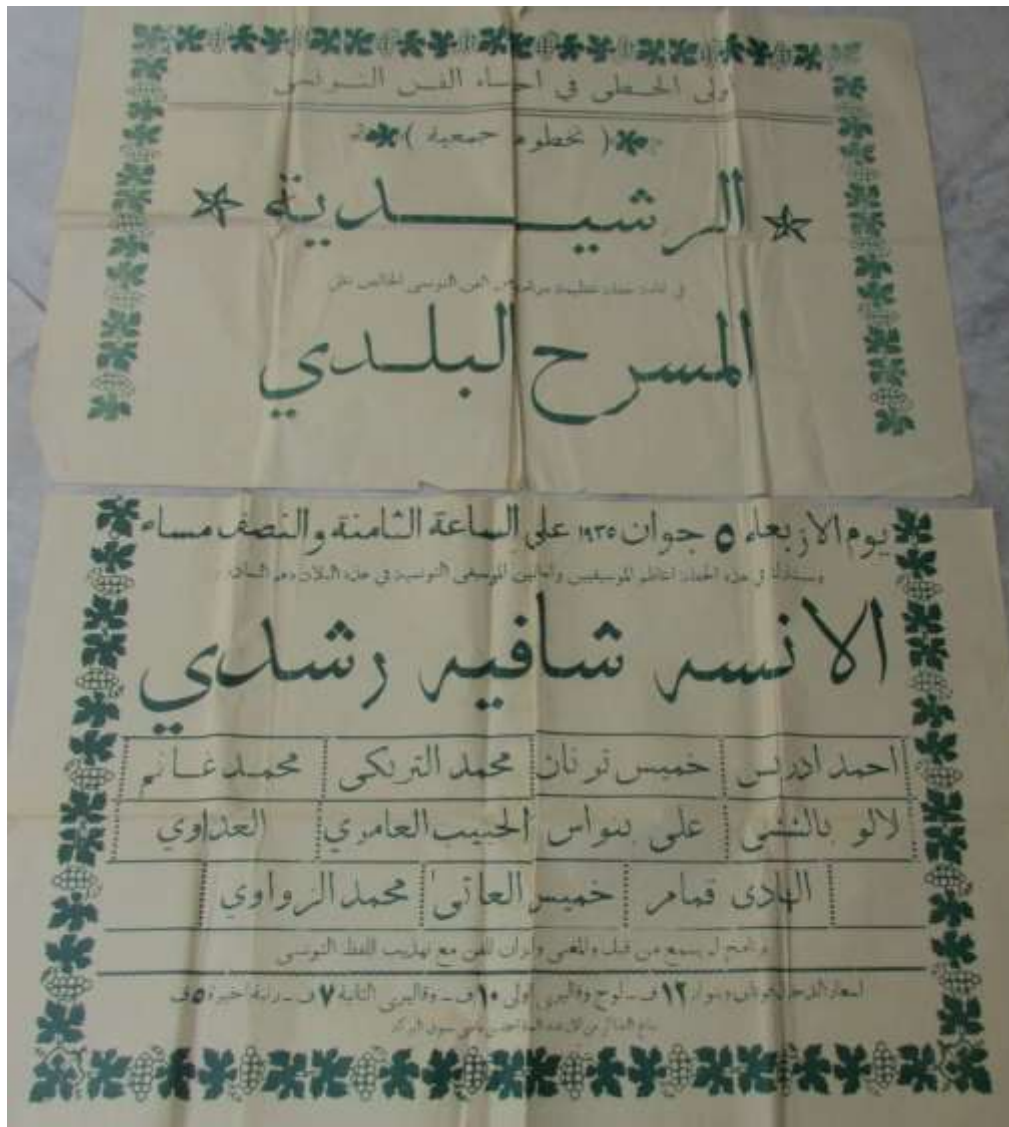 اولى الخطى في احياء الفن التونسي
( تخطوها جمعية )
الرشيدية
في حفلة عظيمة من الفن التونسي الخالص على
المسرح البلدي
يوم الاربعاء ٥ جوان ١٩٣٥ على الساعة الثامنة والنصف مساء
وستشارك في هذه الحفلة اعاظم الموسيقيين الموسيقى التونسية في هذه البلاد وهم السادة :
الانسه شافيه رشدي
احمد ادريس خميس ترنان محمد التريكي محمد غانم
لالو بالششي علي بنواس الحبيب العامري العذاوي
الهادي قمام خميس العاتي محمد الزواوي
لم يسمع من قبل الفن مع تهذيب اللفظ التونسي
اسعار الدخول فوتاي وبنوار ١٢ ف ـ لوج وقاليري اولى ١٠ ف ـ وقاليري الثانية ٧ ف ـ رتبة اخيرة ٥ ف
سوق البركة